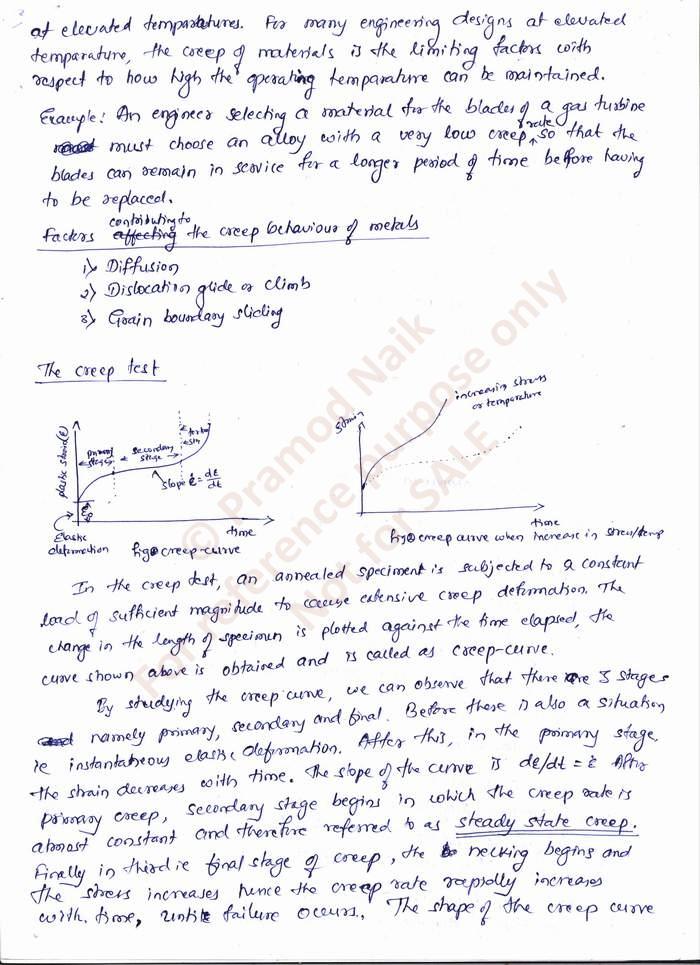 at elevated temparatures. For many engineering designs at elevated
temparature, the creep of materials is the limiting factors with
respect to how high the operating temparature can be maintained.
Example: An engineer selecting a material for the blades of a gas turbine
must choose an alloy with a very low creep rate so that the
blades can remain in service for a longer period of time before having
to be replaced.
Factors contributing to the creep behaviour of metals
1) Diffusion
2) Dislocation glide or climb
3) Grain boundary sliding
The creep test
plastic strain(ε)
primary stage
secondary stage
slope ε̇ = dε/dt
time
Elastic deformation
fig creep-curve
strain
increasing stress
or temperature
time
fig creep curve when increase in stress/temp
© Pramod Naik
For reference purpose only
Not for SALE
In the creep test, an annealed specimen is subjected to a constant
load of sufficient magnitude to cause extensive creep deformation. The
change in the length of specimen is plotted against the time elapsed, the
curve shown above is obtained and is called as creep-curve.
By studying the creep curve, we can observe that there are 3 stages
namely primary, secondary and final. Before these is also a situation
ie instantaneous elastic deformation. After this, in the primary stage,
the strain decreases with time. The slope of the curve is dε/dt = ε̇ After
primary creep, secondary stage begins in which the creep rate is
almost constant and therefore referred to as steady state creep.
Finally in third ie final stage of creep, the necking begins and
the stress increases hence the creep rate rapidly increases
with time, until failure occurs. The shape of the creep curve